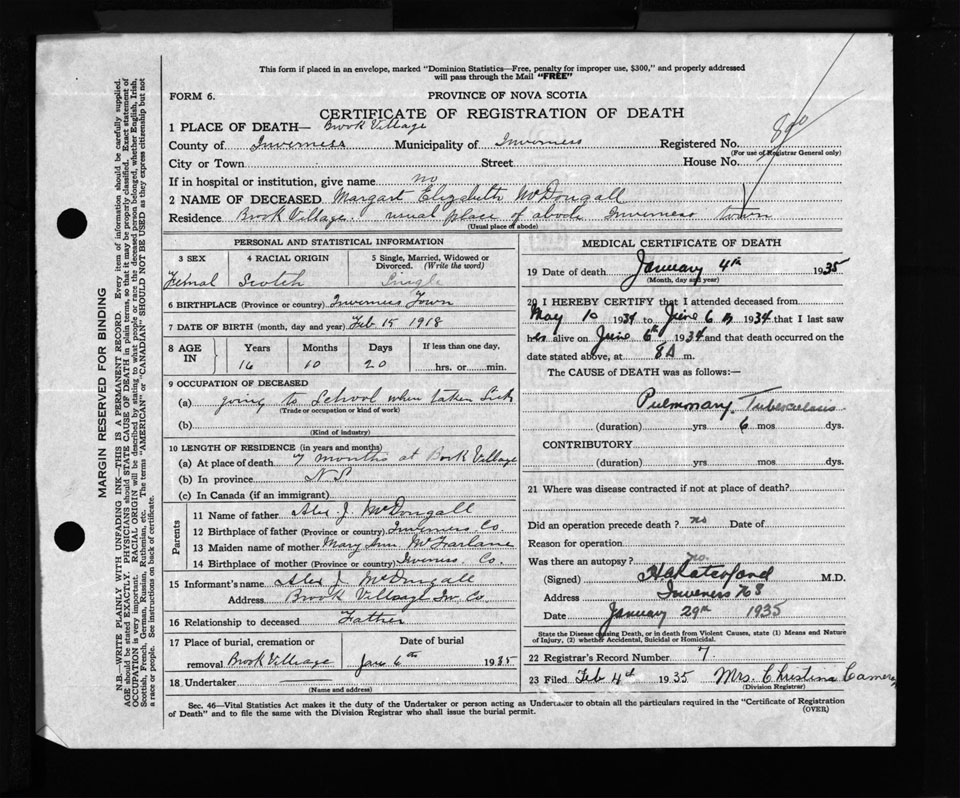 This form if placed in an envelope, marked "Dominion Statistics—Free, penalty for improper use, $300," and properly addressed
will pass through the Mail "FREE"
FORM 6.
PROVINCE OF NOVA SCOTIA
CERTIFICATE OF REGISTRATION OF DEATH
1 PLACE OF DEATH— Brook Village
County of Inverness Municipality of Inverness Registered No.
(For use of Registrar General only)
City or Town Street House No.
If in hospital or institution, give name no
2 NAME OF DECEASED Margart Elizabeth McDougall
Residence Brook Village. usual place of abode Inverness town
(Usual place of abode)
PERSONAL AND STATISTICAL INFORMATION
3 SEX 4 RACIAL ORIGIN 5 Single, Married, Widowed or
Divorced. (Write the word)
Femal Scotch Single
6 BIRTHPLACE (Province or country) Inverness Town
7 DATE OF BIRTH (month, day and year) Feb 15 1918
8 AGE IN Years Months Days If less than one day,
16 10 20 hrs. or min.
9 OCCUPATION OF DECEASED
(a) going to School when taken Sick
(Trade or occupation or kind of work)
(b)
(Kind of industry)
10 LENGTH OF RESIDENCE (in years and months)
(a) At place of death 7 months at Book Village
(b) In province N.S.
(c) In Canada (if an immigrant)
Parents
11 Name of father Alex J. McDougall
12 Birthplace of father (Province or country) Inverness Co.
13 Maiden name of mother Mary Ann McFarlane
14 Birthplace of mother (Province or country) Inverness. Co.
15 Informant's name Alex J McDougall
Address Brook Village Inv. Co.
16 Relationship to deceased Father
17 Place of burial, cremation or Date of burial
removal Brook Village Jan 6th 1935
18 Undertaker
(Name and address)
MEDICAL CERTIFICATE OF DEATH
19 Date of death January 4th 1935
(Month, day and year)
20 I HEREBY CERTIFY that I attended deceased from
May 10 1934 to June 6 1934 that I last saw
her alive on June 6th 1934 and that death occurred on the
date stated above, at 8A m.
The CAUSE of DEATH was as follows:—
Pulmonary Tuberculosis
(duration) yrs 6 mos dys.
CONTRIBUTORY
(duration) yrs mos dys.
21 Where was disease contracted if not at place of death?
Did an operation precede death? no Date of
Reason for operation
Was there an autopsy? no.
(Signed) M.D.
Address Inverness N S
Date January 29th 1935
State the Disease causing Death, or in death from Violent Causes, state (1) Means and Nature
of Injury, (2) whether Accidental, Suicidal or Homicidal.
22 Registrar's Record Number 7.
23 Filed Feb 4th 1935 Mrs. Christina Cameron
(Division Registrar)
Sec. 46—Vital Statistics Act makes it the duty of the Undertaker or person acting as Undertaker to obtain all the particulars required in the "Certificate of Registration
of Death" and to file the same with the Division Registrar who shall issue the burial permit.
(OVER)
MARGIN RESERVED FOR BINDING
N.B.—WRITE PLAINLY WITH UNFADING INK—THIS IS A PERMANENT RECORD. Every item of information should be carefully supplied.
AGE should be stated EXACTLY. PHYSICIANS should STATE CAUSE OF DEATH in plain terms, so that it may be properly classified. Exact statement of
OCCUPATION is very important. RACIAL ORIGIN will be described by stating to what people or race the deceased person belonged, whether English, Irish,
Scottish, French, German, Russian, Ruthenian, etc. The terms "AMERICAN" or "CANADIAN" SHOULD NOT BE USED as they express citizenship but not
a race or people. See instructions on back of certificate.